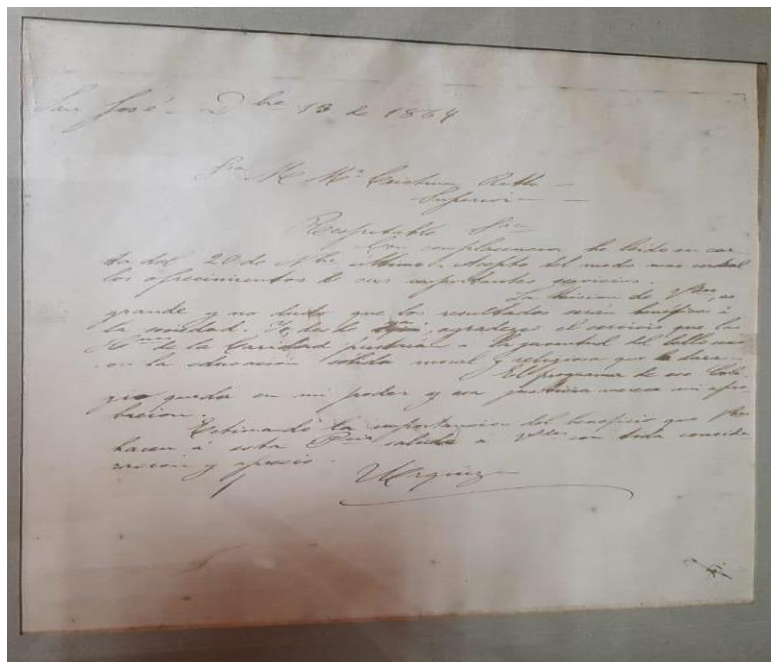 San José Dbre 13 de 1864
Sra M Mª Cristina
Superiora
Respetable Sra
Con complacencia he leido su car
ta del 20 de Nbre último. Acepto del modo mas cordial
los ofrecimientos de sus importantes servicios.
La mision de Vdes, es
grande y no dudo que los resultados serán benéficos á
la sociedad. Yo, desde agradezco el servicio que las
Hnas de la Caridad prestarán a la juventud del bello sexo
con la educacion sólida moral y religiosa que le daran.
El programa de ese Cole-
gio queda en mi poder y con justicia merece mi apro
bacion.
Estimando la importancia del beneficio que Vdes
hacen a esta saluda a Vdes con toda conside
racion y aprecio.
Urquiza